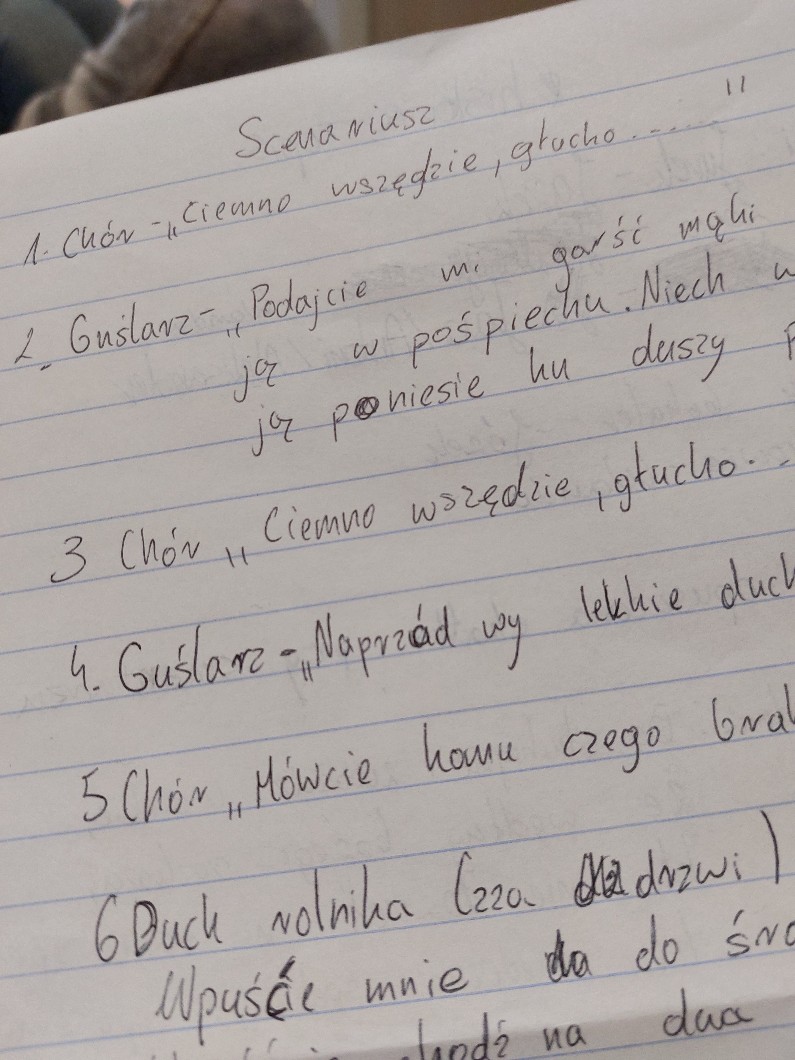 Scenariusz
1. Chór - „Ciemno wszędzie, głucho......."
2. Guślarz - „Podajcie mi garść mąki
ją w pośpiechu. Niech
ją poniesie ku duszy
3 Chór „Ciemno wszędzie, głucho..
4. Guślarz - „Naprzód wy lekkie duch
5 Chór „Mówcie komu czego brak
6 Duch rolnika (zza drzwi)
Wpuście mnie do
na dwa